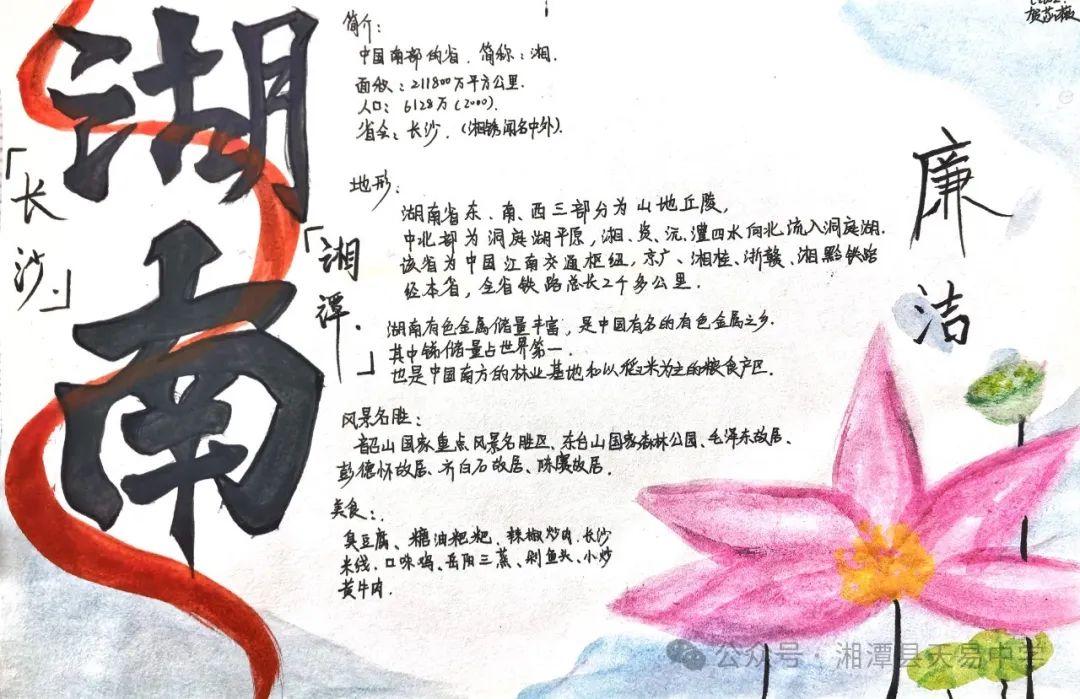 湖南
「长沙.」
「湘潭.」
简介:
中国南部的省.简称:湘.
面积:211800万平方公里.
人口:6128万(2000).
省会:长沙.(湘绣闻名中外).
地形:
湖南省东、南、西三部分为山地丘陵,
中北部为洞庭湖平原,湘、资、沅、澧四水向北流入洞庭湖.
该省为中国江南交通枢纽,京广、湘桂、浙赣、湘黔铁路
经本省,全省铁路总长2千多公里.
湖南有色金属储量丰富,是中国有名的有色金属之乡.
其中锑储量占世界第一.
也是中国南方的林业基地和以稻米为主的粮食产区.
风景名胜:
韶山国家重点风景名胜区、东台山国家森林公园、毛泽东故居、
彭德怀故居、齐白石故居、陈赓故居.
美食:
臭豆腐、糖油粑粑、辣椒炒肉、长沙
米线、口味鸡、岳阳三蒸、剁鱼头、小炒
黄牛肉.
廉洁
公众号·湘潭县天易中学